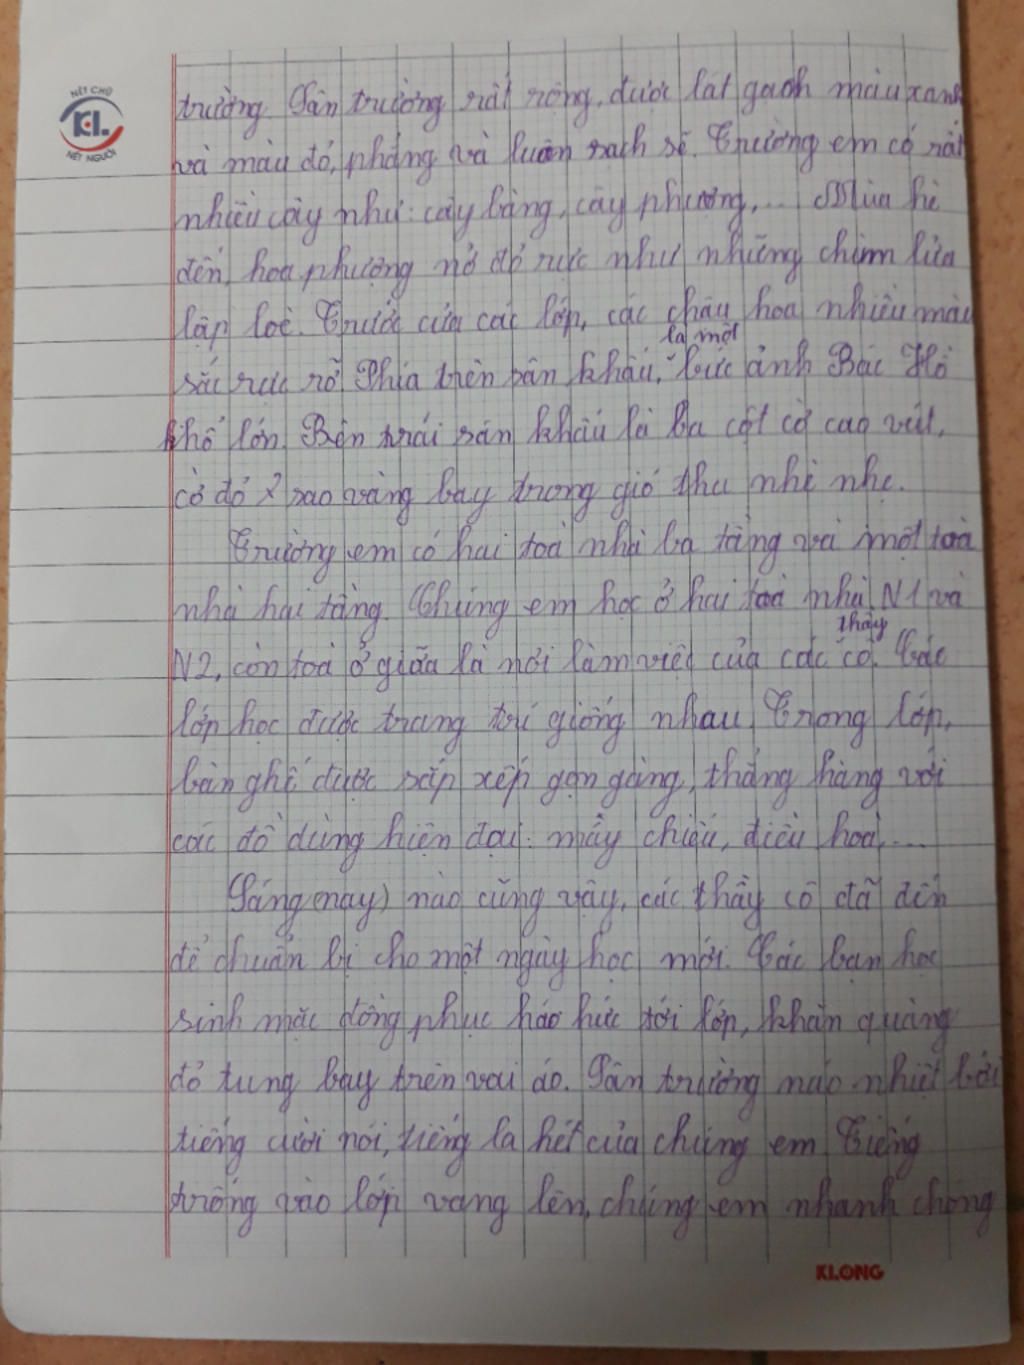 NÉT CHỮ
KL
NẾT NGƯỜI
trường. Sân trường rất rộng, được lát gạch màu xanh
và màu đỏ, phẳng và luôn sạch sẽ. Trường em có rất
nhiều cây như: cây bàng, cây phượng,... Mùa hè
đến, hoa phượng nở đỏ rực như những chùm lửa
lập loè. Trước cửa các lớp, các chậu hoa nhiều màu
là một
sắc rực rỡ. Phía trên sân khấu, bức ảnh Bác Hồ
khổ lớn. Bên trái sân khấu là ba cột cờ cao vút,
cờ đỏ sao vàng bay trong gió thu nhè nhẹ.
Trường em có hai toà nhà ba tầng và một toà
nhà hai tầng. Chúng em học ở hai toà nhà N1 và
thầy
N2, còn toà ở giữa là nơi làm việc của các cô. Các
lớp học được trang trí giống nhau. Trong lớp,
bàn ghế được sắp xếp gọn gàng, thẳng hàng với
các đồ dùng hiện đại: mấy chiếu, điều hoà,...
Sáng (nay) nào cũng vậy, các thầy cô đã đến
để chuẩn bị cho một ngày học mới. Các bạn học
sinh mặc đồng phục háo hức tới lớp, khăn quàng
đỏ tung bay trên vai áo. Sân trường náo nhiệt bởi
tiếng cười nói, tiếng la hét của chúng em. Tiếng
trống vào lớp vang lên, chúng em nhanh chóng
KLONG